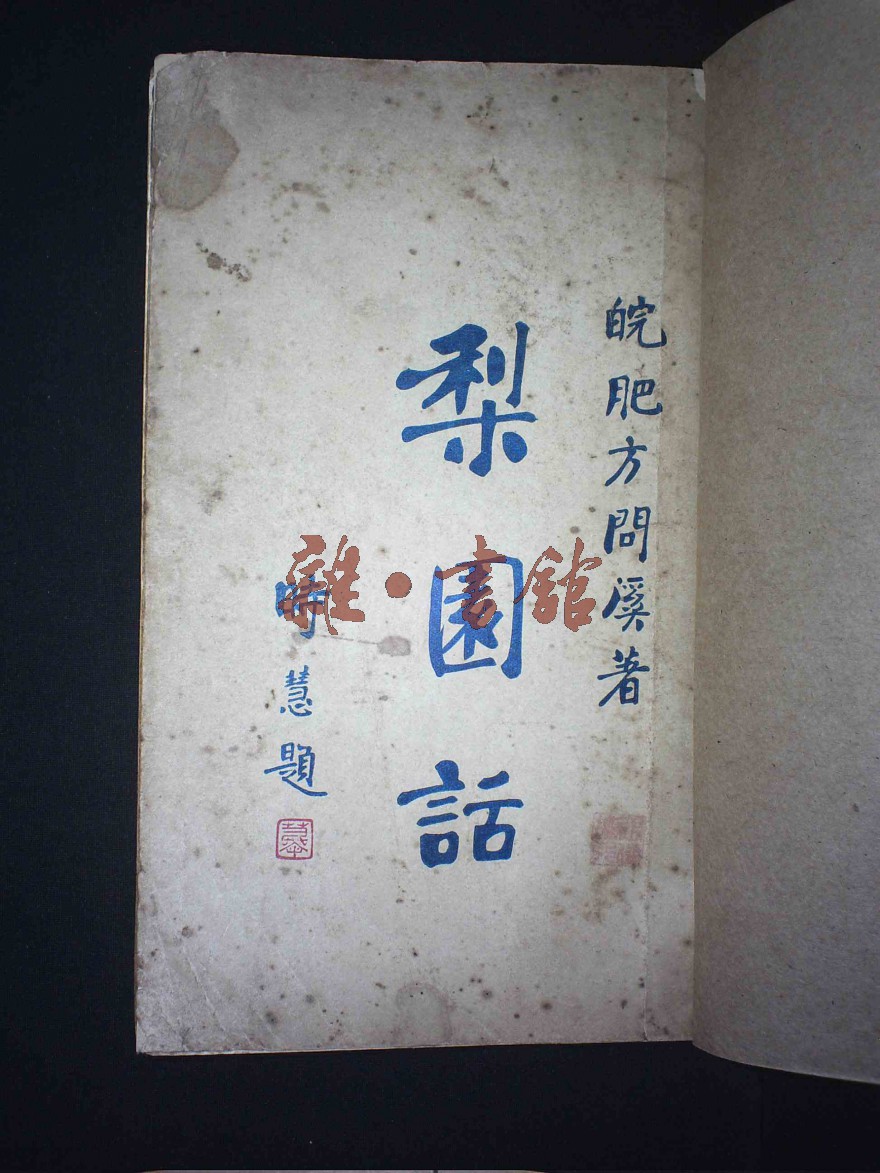 皖肥方問溪著
梨園話
時慧題
雜·書館